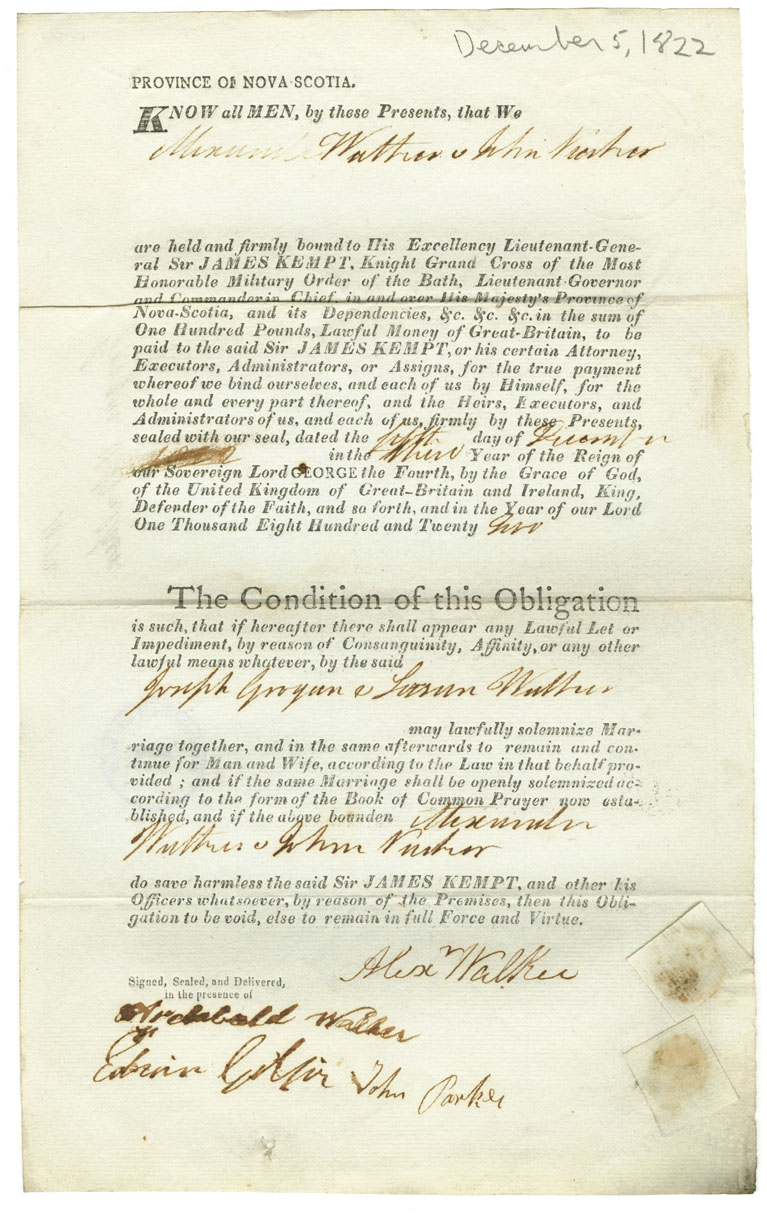 December 5, 1822
PROVINCE OF NOVA-SCOTIA.
KNOW all MEN, by these Presents, that We
Alexander Walker & John Parker
are held and firmly bound to His Excellency Lieutenant-Gene-
ral Sir JAMES KEMPT, Knight Grand Cross of the Most
Honorable Military Order of the Bath, Lieutenant-Governor
and Commander in Chief, in and over His Majesty's Province of
Nova-Scotia, and its Dependencies, &c. &c. &c. in the sum of
One Hundred Pounds, Lawful Money of Great-Britain, to be
paid to the said Sir JAMES KEMPT, or his certain Attorney,
Executors, Administrators, or Assigns, for the true payment
whereof we bind ourselves, and each of us by Himself, for the
whole and every part thereof, and the Heirs, Executors, and
Administrators of us, and each of us, firmly by these Presents,
sealed with our seal, dated the fifth day of December
in the third Year of the Reign of
our Sovereign Lord GEORGE the Fourth, by the Grace of God,
of the United Kingdom of Great-Britain and Ireland, King,
Defender of the Faith, and so forth, and in the Year of our Lord
One Thousand Eight Hundred and Twenty two
The Condition of this Obligation
is such, that if hereafter there shall appear any Lawful Let or
Impediment, by reason of Consanguinity, Affinity, or any other
lawful means whatever, by the said
Joseph Grogan & Susan Walker
may lawfully solemnize Mar-
riage together, and in the same afterwards to remain and con-
tinue for Man and Wife, according to the Law in that behalf pro-
vided ; and if the same Marriage shall be openly solemnized ac-
cording to the form of the Book of Common Prayer now esta-
blished, and if the above bounden Alexander
Walker & John Parker
do save harmless the said Sir JAMES KEMPT, and other his
Officers whatsoever, by reason of the Premises, then this Obli-
gation to be void, else to remain in full Force and Virtue.
Alexr Walker
Signed, Sealed, and Delivered,
in the presence of
Archebald Walker
Edwin
John Parker